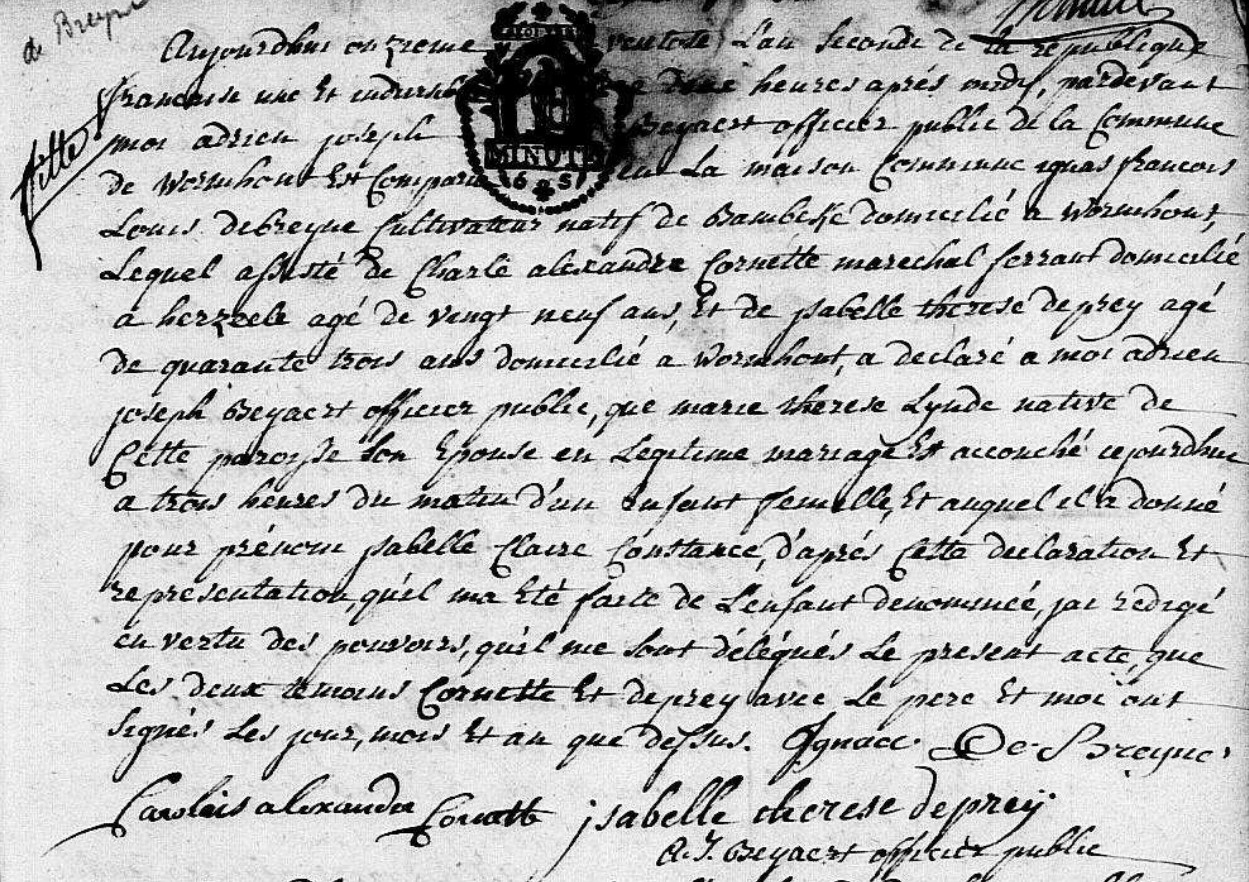 de Breyne
fille
MINUTE
Aujourdhui onzieme ventose L'an seconde de la republique
francaise une Et indivisible heures aprés midy, pardevant
moi adrien joseph Beyaert officier public de la Commune
de Wormhout Est Comparu en La maison Commune ignas francois
Louis deBreyne Cultivateur natif de Bambeke domicilié a Wormhout,
Lequel assisté de Charle alexandre Cornette marechal ferrant domicilié
a herzeele agé de vingt neuf ans, Et de jsabelle therese deprey agé
de quarante trois ans domicilié a Wormhout, a declaré a moi adrien
joseph Beyaert officier public, que marie therese Lynde native de
Cette paroisse son Epouse en Legitime mariage Est accouché cejourdhui
a trois heures du matin d'un enfant femelle, Et auquel il a donné
pour prénom jsabelle Claire Constance, d'aprés Cette declaration Et
representation, qu'il ma Eté faite de L'enfant denommée, jai redigé
en vertu des pouvoirs, qu'il me sont délégués Le present acte, que
Les deux temoins Cornette Et deprey avec Le pere Et moi ont
signés Les jour, mois Et an que dessus. Ignace De Breyne
Carolus alexander Cornette jsabelle therese deprey
A. J. Beyaert officier public